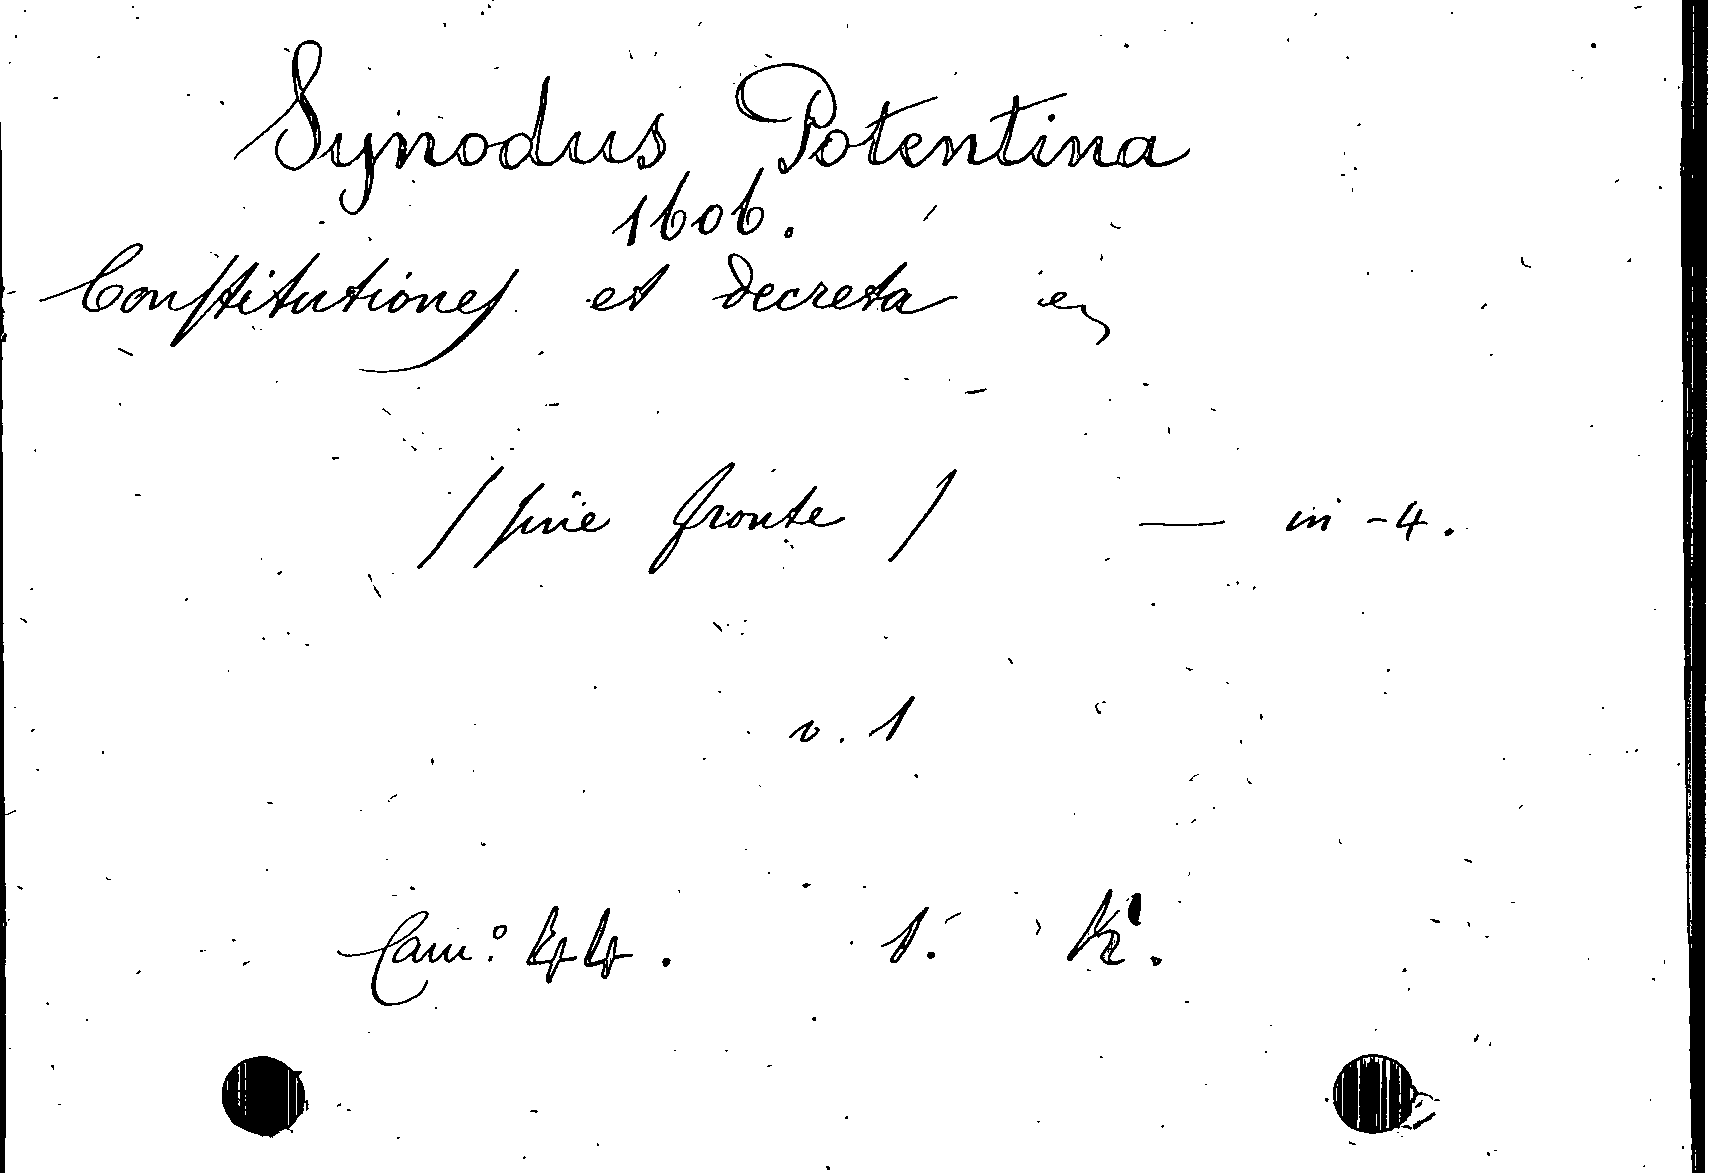 Synodus Potentina
1606.
Constitutiones et decreta
/ sine fronte / — in-4.
v. 1
Cam.º 44. 1.